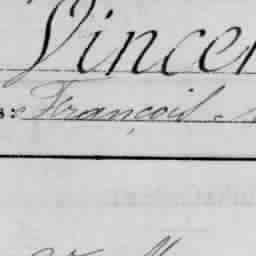 Vincen
s: François